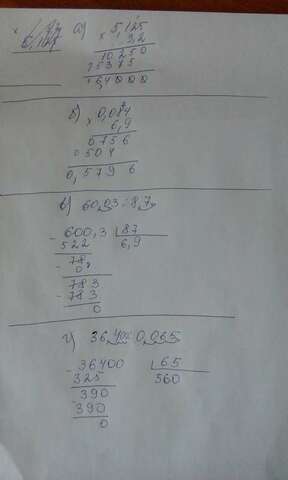 а) 5,125
× 3,2
10250
15375
16,4000
б) 0,084
× 6,9
0756
0504
0,5796
в) 60,03 : 8,7
- 600,3 | 87
522 6,9
783
- 783
0
г) 36,400 : 0,065
- 36400 | 65
325 560
390
390
0